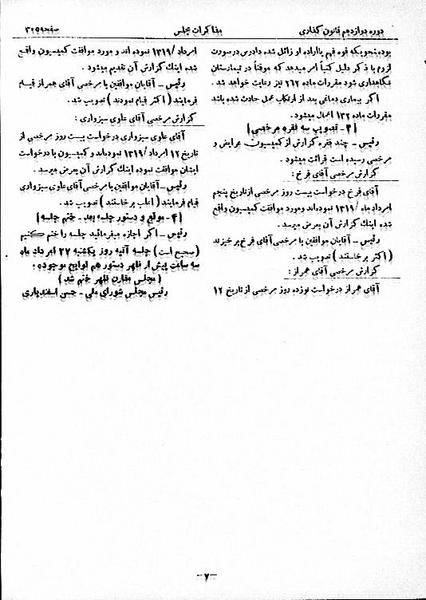 دوره دوازدهم قانون گذاری
مذاکرات مجلس
صفحه ۳۲۵۹
بوده بنحویکه قوه فهم یا اراده او زائل شده دادرس در صورت
لزوم با ذکر دلیل کتباً امر میدهد که موقتاً در تیمارستان
نگاهداری شود مقررات ماده ۱۶۲ نیز رعایت خواهد شد.
اگر بیماری دماغی بعد از ارتکاب عمل حادث شده باشد
مقررات ماده ۱۳۶ اعمال میشود.
[۳ - تصویب سه فقره مرخصی]
رئیس - چند فقره گزارش از کمیسیون عرایض و
مرخصی رسیده است قرائت میشود.
گزارش مرخصی آقای فرخ:
آقای فرخ درخواست بیست روز مرخصی از تاریخ پنجم
امرداد ماه ۱۳۱۹ نموده‌اند و مورد موافقت کمیسیون واقع
شده اینک گزارش آن بعرض میرسد.
رئیس - آقایان موافقین با مرخصی آقای فرخ برخیزند
(اکثر برخاستند) تصویب شد.
گزارش مرخصی آقای همراز:
آقای همراز درخواست نوزده روز مرخصی از تاریخ ۱۲
امرداد ۱۳۱۹ نموده اند و مورد موافقت کمیسیون واقع
شده اینک گزارش آن تقدیم میشود.
رئیس - آقایان موافقین با مرخصی آقای همراز قیام
فرمایند (اکثر قیام نمودند) تصویب شد.
گزارش مرخصی آقای علوی سبزواری:
آقای علوی سبزواری درخواست بیست روز مرخصی از
تاریخ ۱۲ امرداد ۱۳۱۹ نموده‌اند و کمیسیون با درخواست
ایشان موافقت نموده اینک گزارش آن بعرض میرسد.
رئیس - آقایان موافقین با مرخصی آقای علوی سبزواری
قیام فرمایند (اغلب برخاستند) تصویب شد.
[۴ - موقع و دستور جلسه بعد - ختم جلسه]
رئیس - اگر اجازه میفرمائید جلسه را ختم کنیم
(صحیح است) جلسه آتیه روز یکشنبه ۲۷ امرداد ماه
سه ساعت پیش از ظهر دستور هم لوایح موجوده.
(مجلس مقارن ظهر ختم شد)
رئیس مجلس شورای ملی - حسن اسفندیاری
-۷-